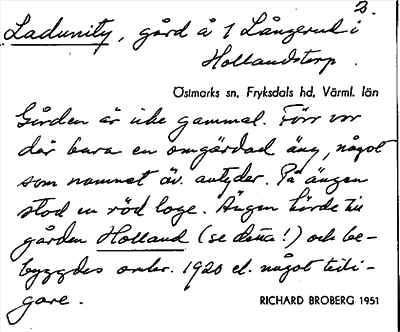 3.
Ladunity, gård å 1 Långerud i
Hollandstorp.
Östmarks sn, Fryksdals hd, Värml. län
Gården är icke gammal. Förr var
där bara en omgärdad äng, något
som namnet äv. antyder. På ängen
stod en röd loge. Ängen hörde till
gården Holland (se detta!) och be-
byggdes omkr. 1920 el. något tidi-
gare.
RICHARD BROBERG 1951